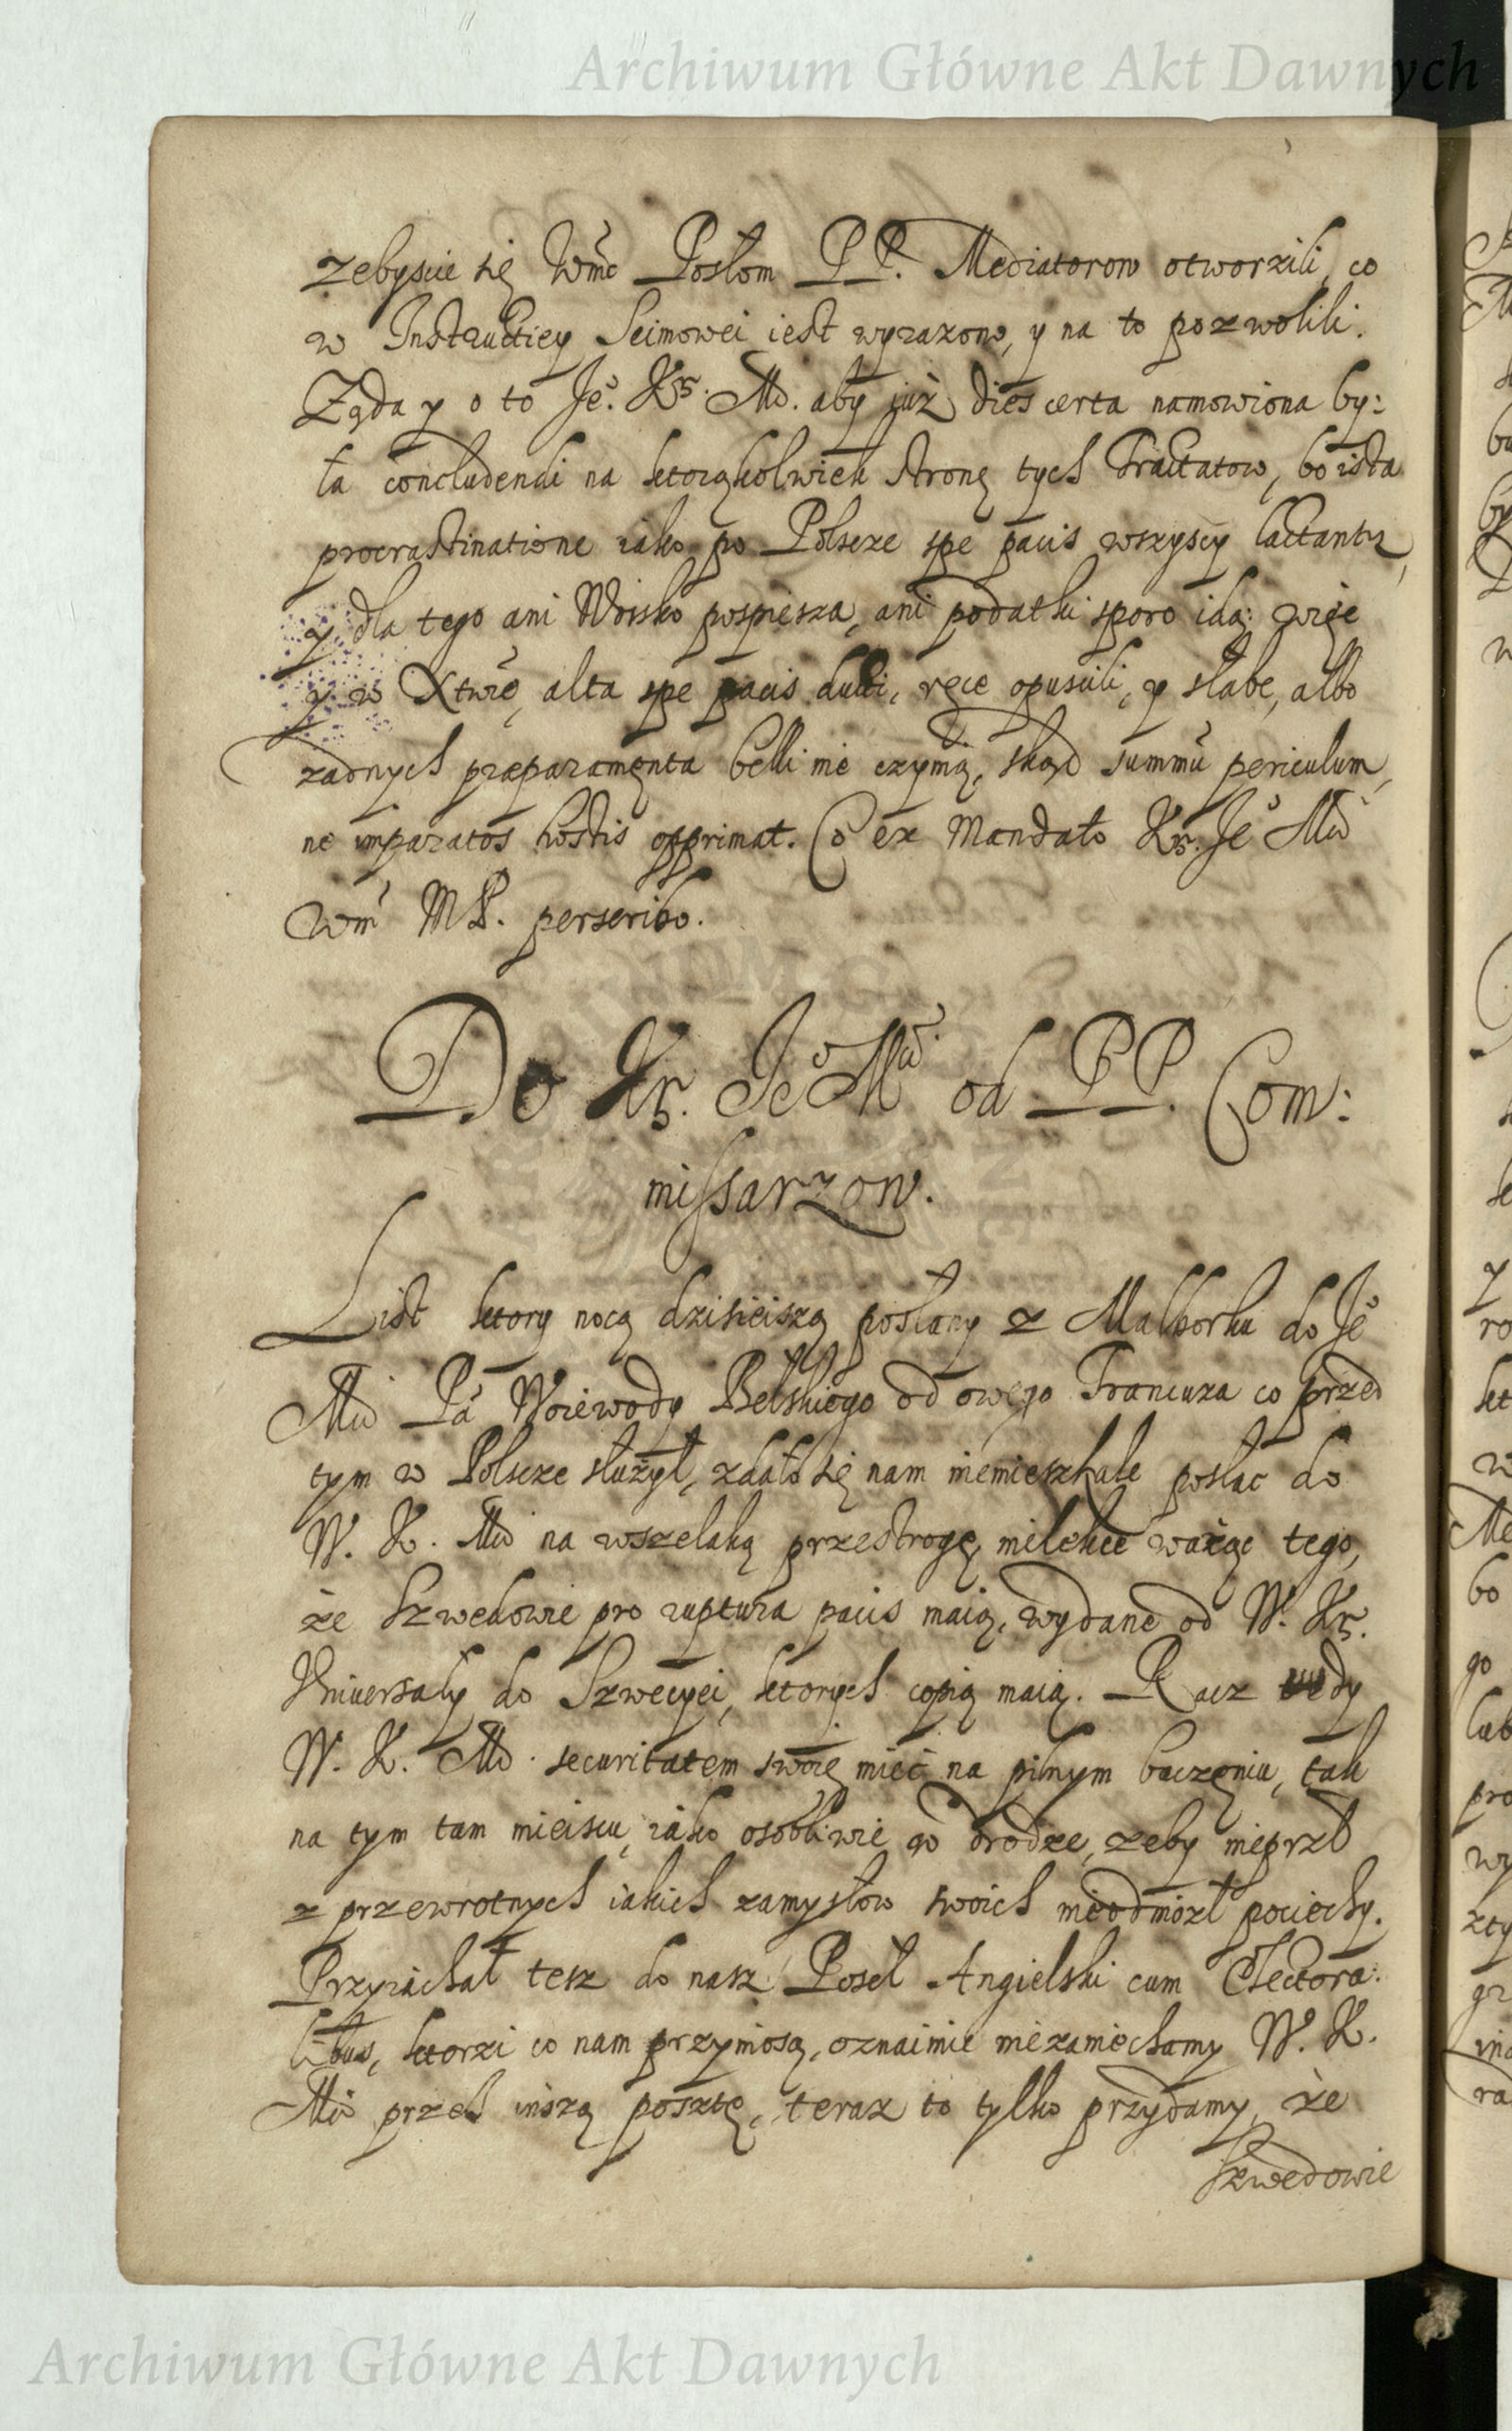 Archiwum Główne Akt Dawnych
zebyscie się Wmć Posłom PP. Mediatorow otworzili, co
w Instructiey Seimowei iest wyrazono, y na to pozwolili.
Ząda y o to Je. Kr. Mć. aby już dies certa namowiona by:
ła concludendi na ktorąkolwiek stronę tych Tractatow, bo ista
procrastinatione iako po Polscze spe pacis wszyscy lactantur,
y dla tego ani Woisko pospiesza, ani podatki sporo idą: więc
y w Xtwie, alta spe pacis ducti, ręce opuscili, y słabe, albo
zadnych præparamenta belli nie czynią, skąd summũ periculum,
ne imparatos hostis opprimat. Co ex Mandato Kr. Je Mći
Wm MP. perscribo.
Do Kr. Je Mći od PP. Com:
missarzow.
List ktory nocą dzisieiszą posłany z Malborku do Je
Mći Pa Woiewody Belskiego od owego Francuza co przed
tym w Polscze służył, zdało się nam niemieszkale posłac do
W. K. Mći na wszelaką przestrogę, nielekce ważąc tego,
że Szwedowie pro ruptura pacis maią, wydane od W. Kr.
Uniuersały do Szwecyei, ktorych copią maią. Racz tedy
W. K. Mć. securitatem swoię mieć na pilnym baczeniu, tak
na tym tam mieiscu, iako osobliwie w drodze, zeby nieprzl
z przewrotnych iakich zamysłow swoich nieodniozł pociechy.
Przyiachał tesz do nasz Poseł Angielski cum Electora:
libus, ktorzi co nam przyniosą, oznaimic niezaniechamy W. K.
Mći przed inszą posztę, teraz to tylko przydamy, że
Szwedowie
Archiwum Główne Akt Dawnych